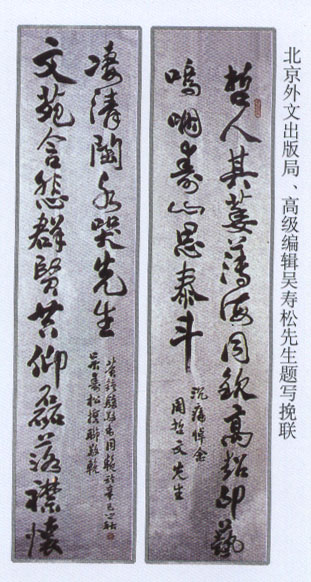 北京外文出版局、高级编辑吴寿松先生题写挽联
哲人其萎薄海同钦高超印艺
呜咽寿山思泰斗
沉痛悼念
周哲文先生
文苑含悲群贤共仰磊落襟怀
凄清闽水哭先生
吴寿松撰联敬挽